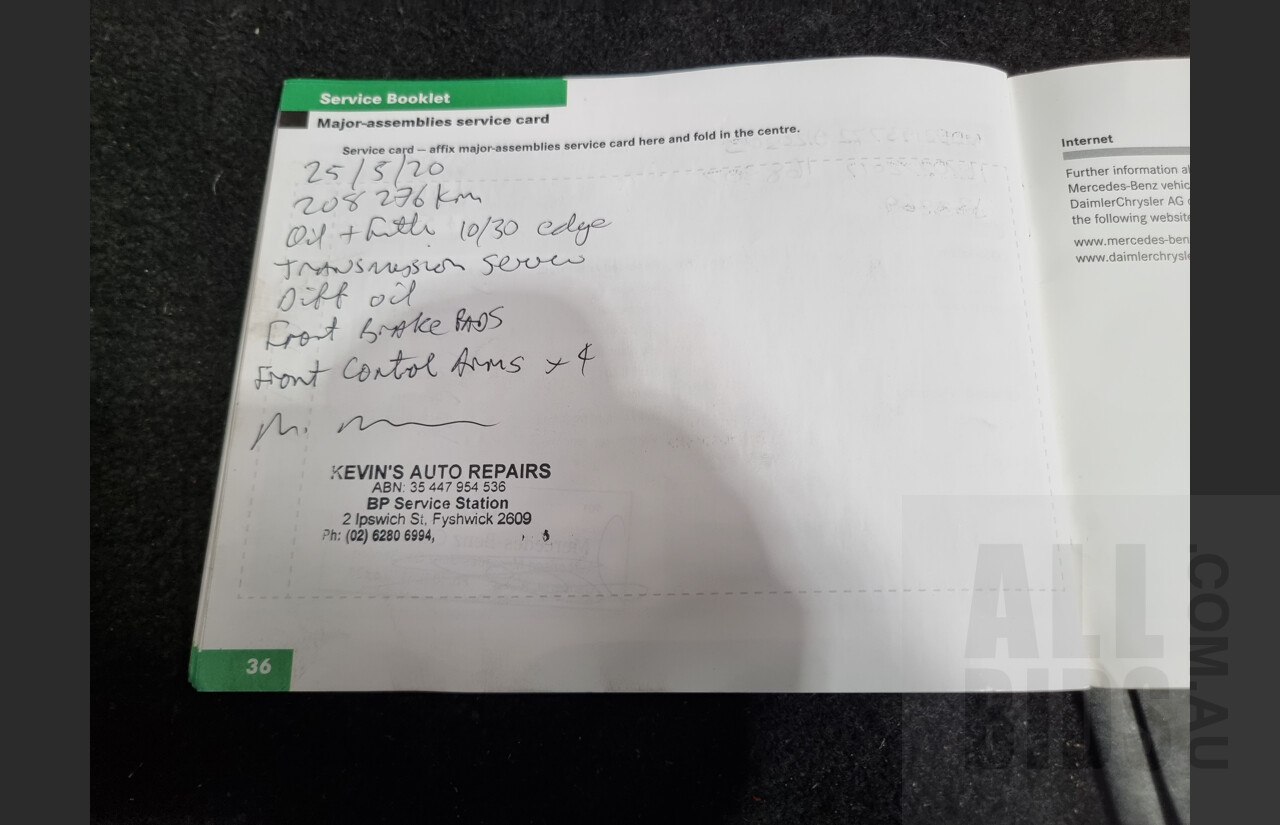 Service Booklet
Major-assemblies service card
Service card – affix major-assemblies service card here and fold in the centre.
25/5/20
208 276 km
Oil + 10/30 edge
Transmission
Diff oil
Front Brake PADS
Front Control Arms x 4
KEVIN'S AUTO REPAIRS
ABN: 35 447 954 536
BP Service Station
2 Ipswich St, Fyshwick 2609
Ph: (02) 6280 6994,
36
Internet
Further information
Mercedes-Benz
DaimlerChrysler AG
the following
www.mercedes-ben
www.daimlerchrysle
ALL
BIDS
.COM.AU